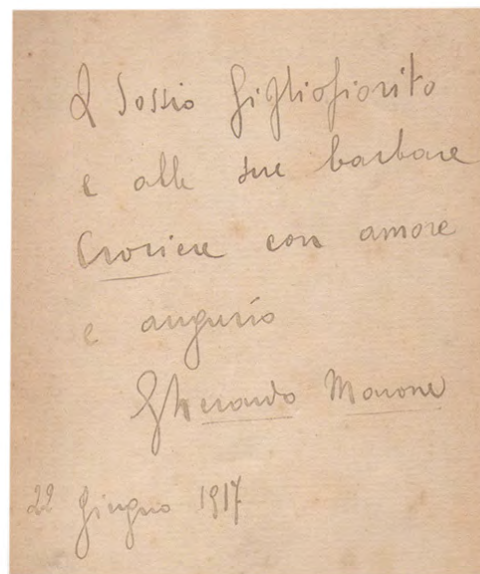 A Sossio Gigliofiorito
e alle sue barbare
Crociere con amore
e augurio
Gherardo Marone
22 giugno 1917